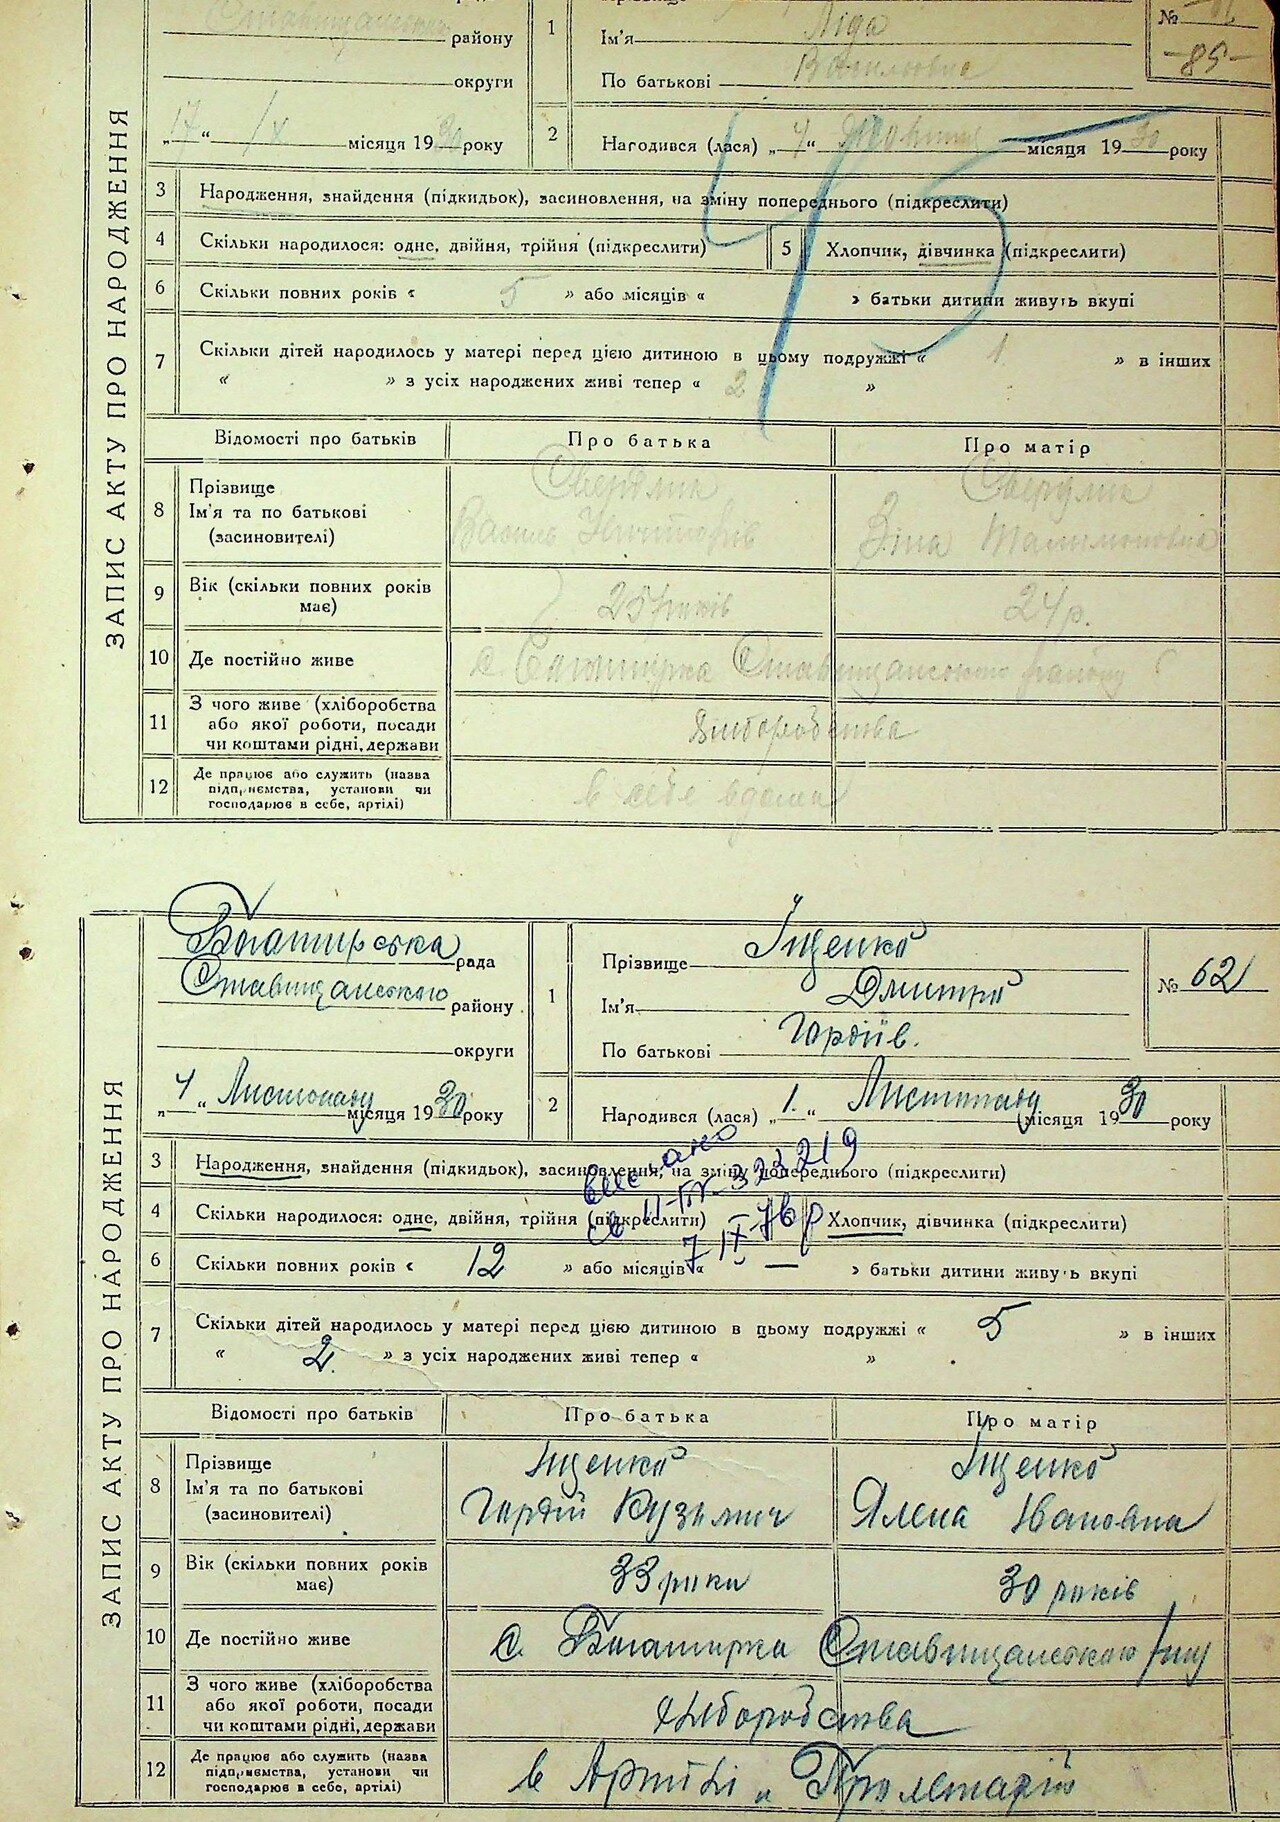 ЗАПИС АКТУ ПРО НАРОДЖЕННЯ
району
округи
„17“ IX місяця 1930 року
1
Ім'я Ліда
По батькові Василовна
№
-85-
2
Нагодився (лася) „4“ місяця 1930 року
45
3 Народження, знайдення (підкидьок), засиновлення, на зміну попереднього (підкреслити)
4 Скільки народилося: одне, двійня, трійня (підкреслити)
5 Хлопчик, дівчинка (підкреслити)
6 Скільки повних років « 5 » або місяців « » батьки дитини живуть вкупі
7 Скільки дітей народилось у матері перед цією дитиною в цьому подружжі « 1 » в інших
« » з усіх народжених живі тепер « 2 »
Відомості про батьків Про батька Про матір
8 Прізвище
Ім'я та по батькові
(засиновителі)
Василь
Зіна
9 Вік (скільки повних років
має)
25 років 24 р.
10 Де постійно живе с. Ставищанського району
11 З чого живе (хліборобства
або якої роботи, посади
чи коштами рідні, держави
Хліборобства
12 Де працює або служить (назва
підприємства, установи чи
господарює в себе, артілі)
в себе вдома
ЗАПИС АКТУ ПРО НАРОДЖЕННЯ
Богатирська рада
Ставищанського району
округи
„4“ Листопаду місяця 1930 року
1
Прізвище Іщенко
Ім'я Дмитро
По батькові Гордіїв.
№ 62
2
Народився (лася) „1.“ Листопаду місяця 1930 року
3 Народження, знайдення (підкидьок), засиновлення, на зміну попереднього (підкреслити)
св II-БК-323219
7 IX-76 р
4 Скільки народилося: одне, двійня, трійня (підкреслити)
Хлопчик, дівчинка (підкреслити)
6 Скільки повних років « 12 » або місяців « — » батьки дитини живуть вкупі
7 Скільки дітей народилось у матері перед цією дитиною в цьому подружжі « 5 » в інших
« 2 » з усіх народжених живі тепер « »
Відомості про батьків Про батька Про матір
8 Прізвище
Ім'я та по батькові
(засиновителі)
Іщенко
Гордій Кузьмич
Іщенко
Ялена Івановна
9 Вік (скільки повних років
має)
33 роки 30 років
10 Де постійно живе с. Богатирка Ставищанського р-ну
11 З чого живе (хліборобства
або якої роботи, посади
чи коштами рідні, держави
Хліборобства
12 Де працює або служить (назва
підприємства, установи чи
господарює в себе, артілі)
в Артілі „Пролетарій